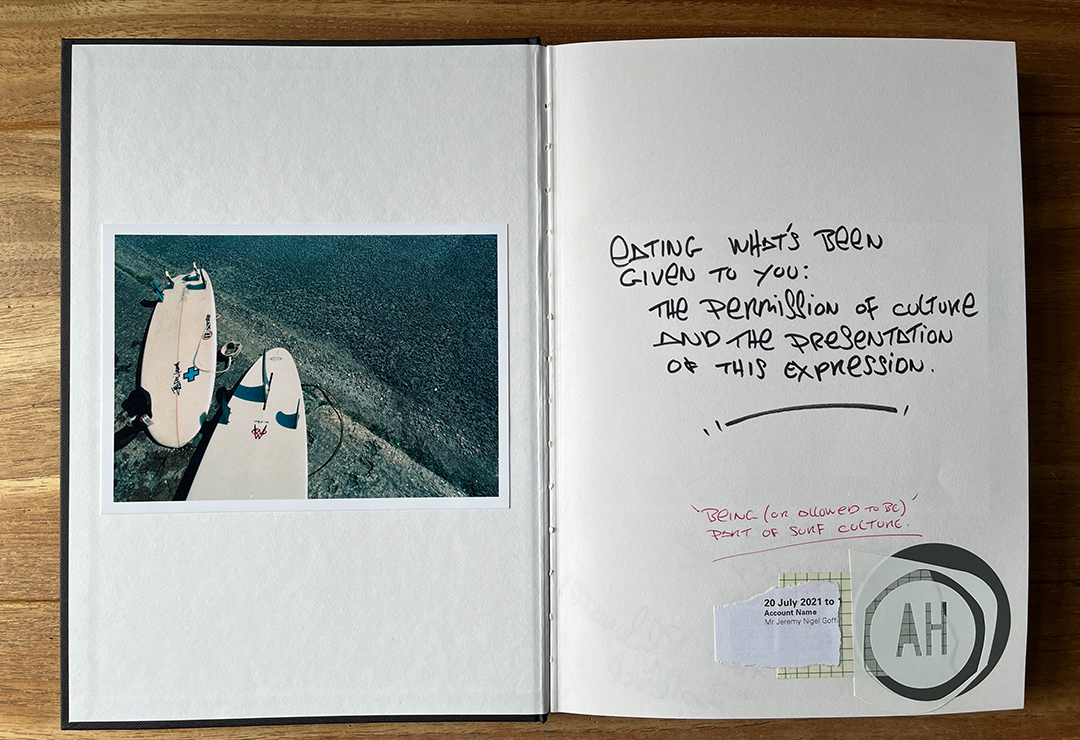 eATING WHAT'S BEEN
GIVEN TO YOU:
THE PERMISSION OF CULTURE
AND THE PRESENTATION
OF THIS EXPRESSION.
'BEING (OR ALLOWED TO BE)'
PART OF SURF CULTURE.
20 July 2021 to 1
Account Name
Mr Jeremy Nigel Goffi
AH